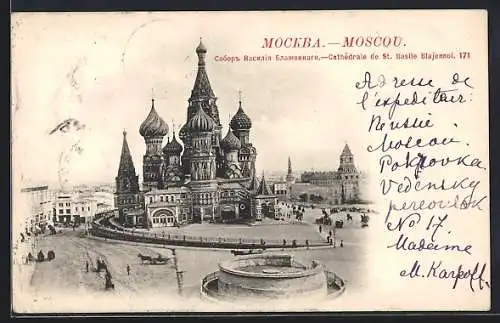 МОСКВА.—MOSCOU.
Соборъ Василія Блаженнаго.—Cathédrale de St. Basile Blajennoi. 171
Adresse de
l'expediteur:
Russie.
Moscou.
Pokrovka
Vedensky
pereoulok
No 17.
Madame
M. Karpoff.